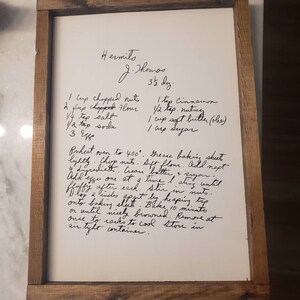 Hermits
J. Thomas
3½ dz.
1 cup chopped nuts
1 tsp cinnamon
2 cup flour
½ tsp. nutmeg
¼ tsp salt
1 cup soft butter
½ tsp soda
1 cup sugar
3 eggs
Preheat oven to 400°. Grease baking sheet
lightly Chop nuts Sift flour. Add next
ingredients. Cream butter & sugar.
Add eggs one at a time & stir until
fluffy after each. Stir in nuts.
Drop 2 inches apart by heaping tsp
onto baking sheet. Bake 10 minutes
or until nicely browned. Remove at
once to racks to cool Store in
air tight container.